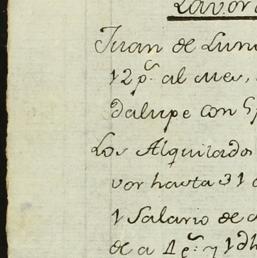 Lavor
Juan de Luna
12 p.s al mes,
dalupe con 5 p
Los Alquilados
vor hasta 31 d
1 Salario de a
de a 1 p.s y 1 dh